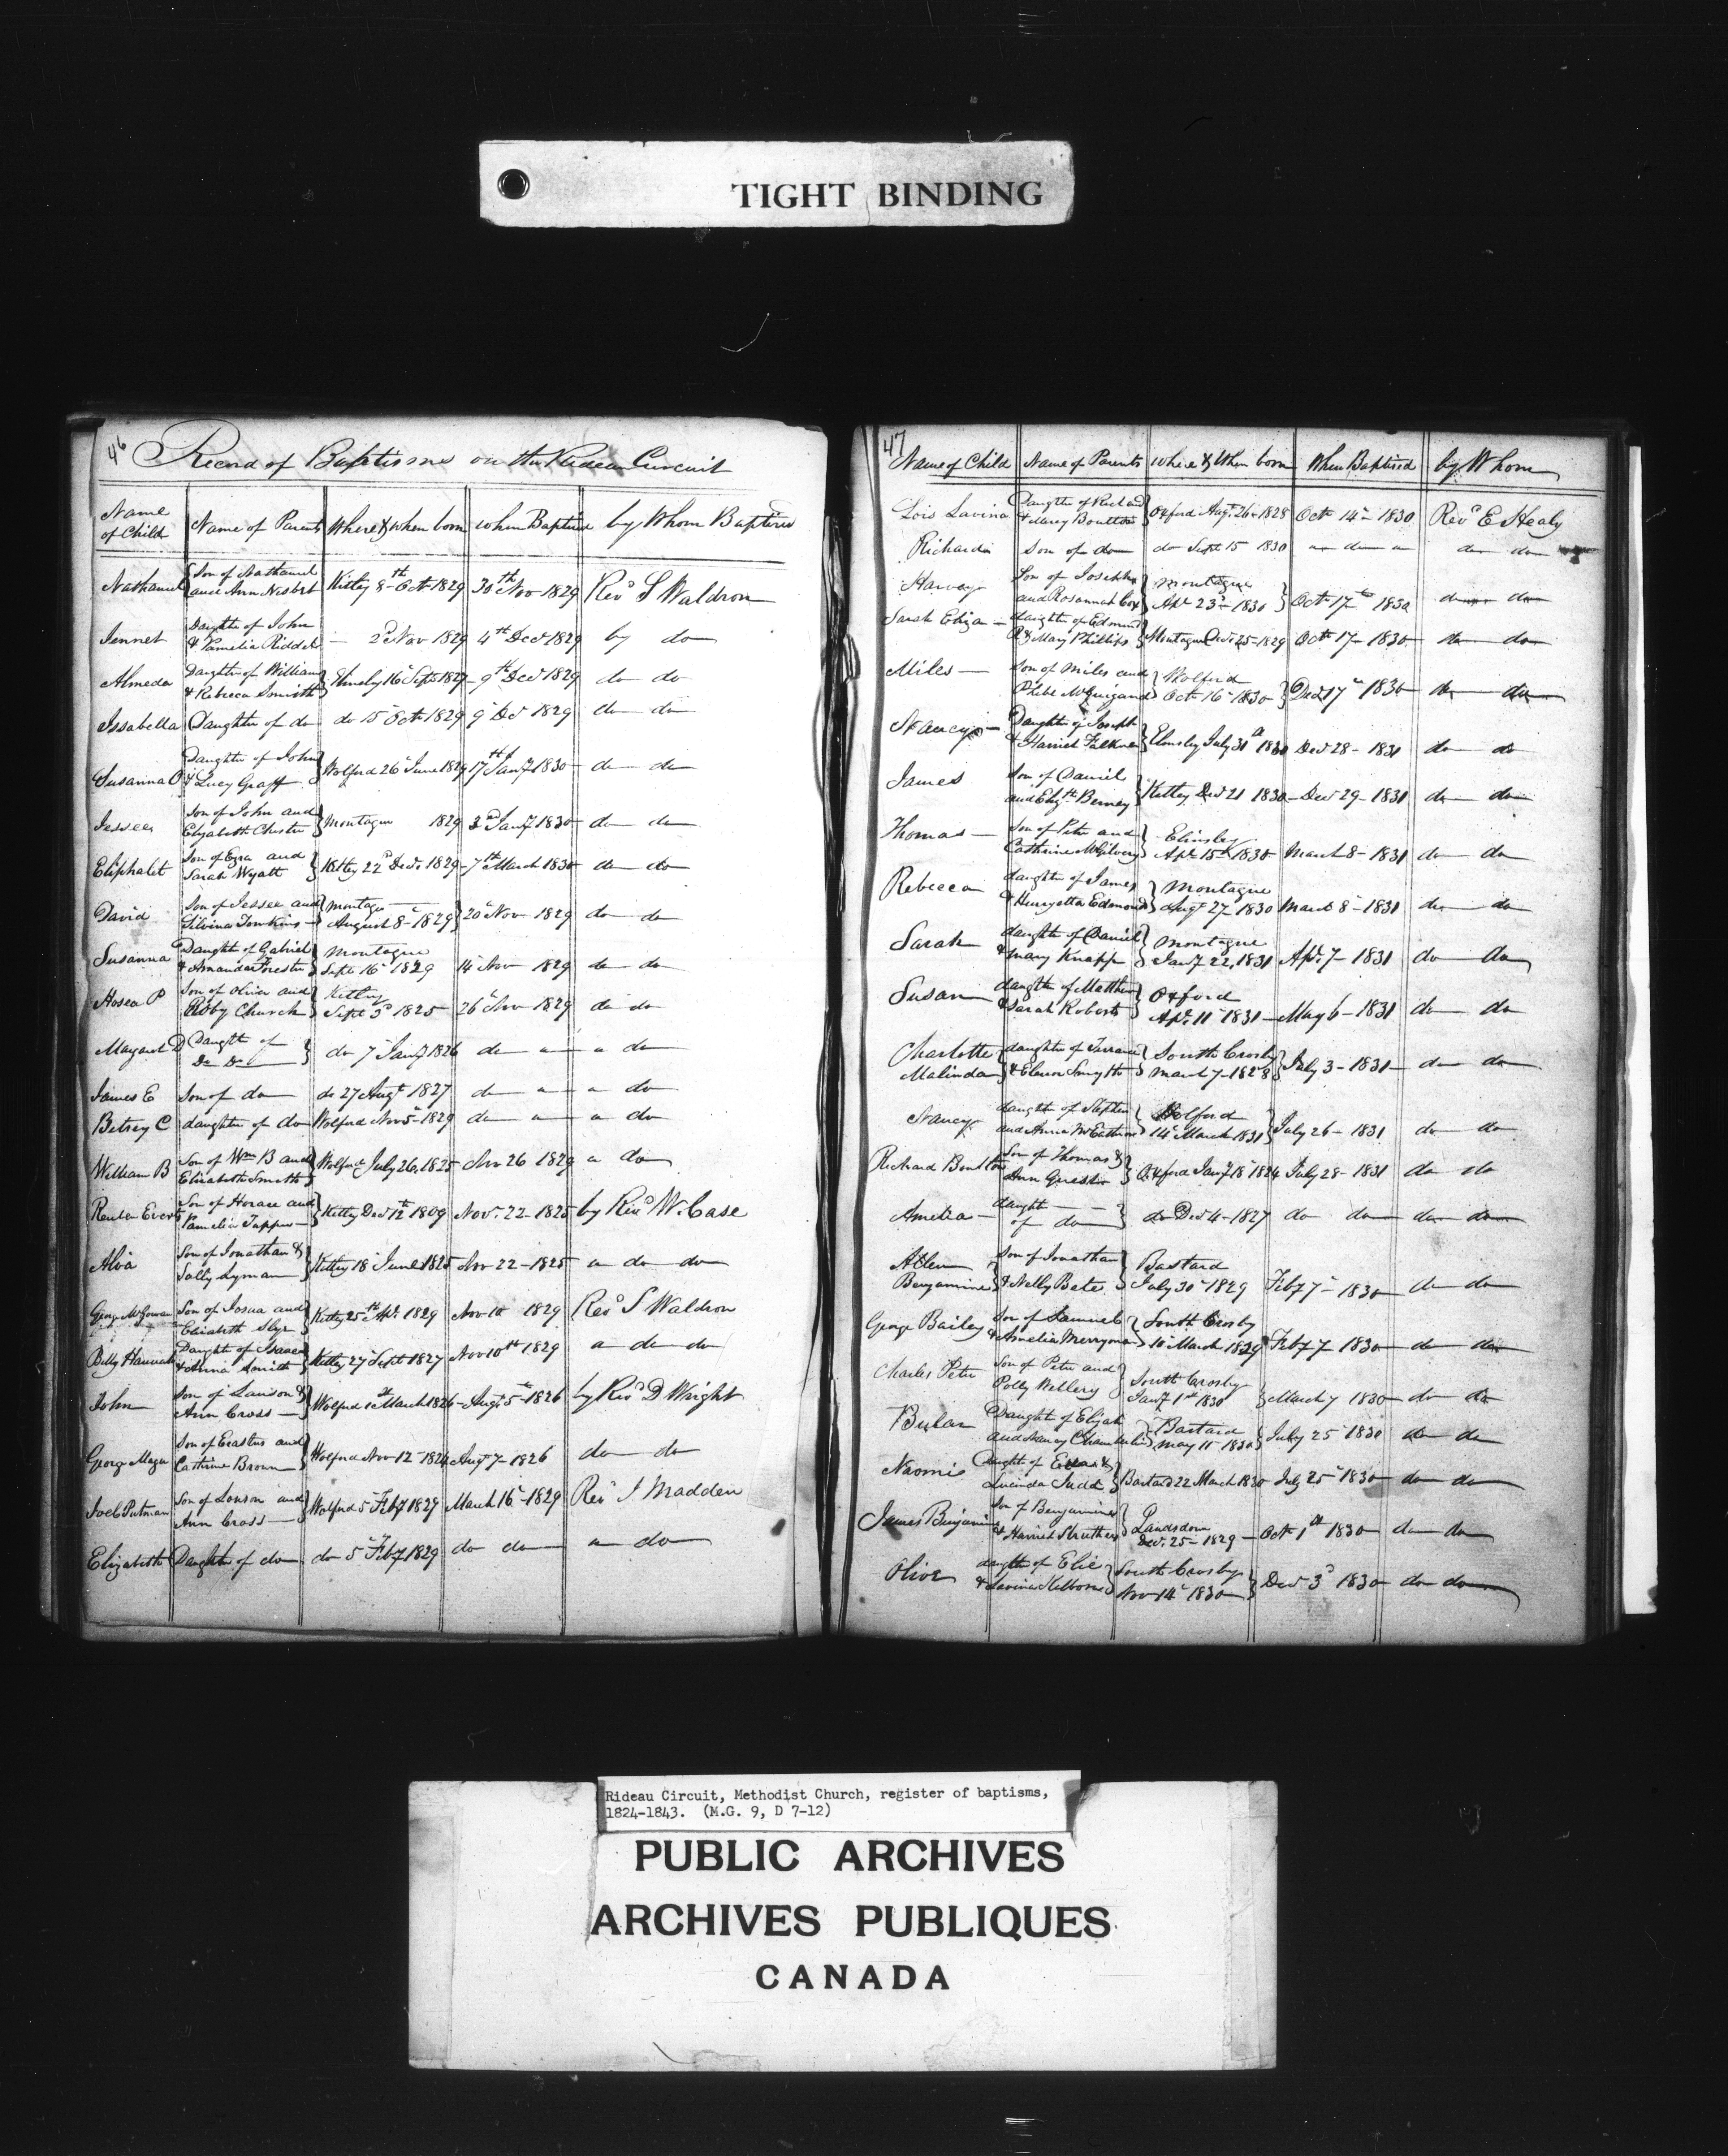 TIGHT BINDING
46 Record of Baptisms on the Rideau Circuit
Name of Child Name of Parents Where & when born when Baptised by Whom Baptised
Nathaniel Son of Nathaniel and Ann Nesbet Kitley 8th Oct 1829 30th Nov 1829 Revd S Waldron
Jennet Daughter of John & Pamelia Riddel — 2d Nov 1829 4th Decr 1829 by do
Almeda Daughter of William & Rebecca Smith Elmsley 16 Sept 1829 9th Decr 1829 do do
Issabella Daughter of do do 15 Octr 1829 9 Dec 1829 do do
Susanna O Daughter of John & Lucy Graff Wolford 26 June 1829 17th Jany 1830 do do
Jessee Son of John and Elizabeth Chester Montague 1829 3d Jany 1830 do do
Eliphalet Son of Ezra and Sarah Wyatt Kitley 22d Decr 1829 7th March 1830 do do
David Son of Jessee and Silvina Jonkins Montague August 8 1829 20 Nov 1829 do do
Susanna Daughter of Gabriel & Amanda Forester Montague Sept 16 1829 14 Nov 1829 do do
Hosea P Son of Oliver and Roby Church Kitley Sept 3d 1825 26 Nov 1829 do do
Margaret D Daught of Do Do do 7 Jany 1826 do " " do
James E Son of do do 27 Augt 1827 do " " do
Betsey C daughter of do Wolford Nov 5 1829 do " " do
William B Son of Wm B and Elizabeth Smith Wolford July 26, 1825 Nov 26 1829 " do
Reuben Everts Son of Horace and Pamelia Tupper Kitley Decr 12th 1809 Novr 22 - 1825 by Revd W. Case
Alva Son of Jonathan & Sally Lyman Kitley 18 June 1825 Nov 22 - 1825 " do do
George McGowan Son of Josua and Elizabeth Slye Kitley 25th Apl 1829 Nov 10 1829 Revd S Waldron
Betty Hannah Daught of Isaac & Anna Smith Kitley 27 Sept 1827 Nov 10th 1829 " do do
John Son of Lawson & Ann Cross Wolford 1st March 1826 Augt 5th 1826 by Revd D Wright
George Son of Erastus and Cathrine Brown Wolford Nov 12 1824 Augt 7 1826 do do
Joel Putman Son of Lonson and Ann Cross Wolford 5 Feby 1829 March 16 1829 Rev J Madden
Elizabeth Daughter of do do 5 Feby 1829 do do " do
47 Name of Child Name of Parents where & When born When Baptised by Whom
Lois Lavina Daughter of Richard & Mary Boulton Oxford Augt 26 1828 Oct 14 - 1830 Revd E Healy
Richard Son of do do Sept 15 1830 " do " do do
Harvey Son of Joseph and Rosannah Cox Montague Apl 23d 1830 Oct 17th 1830 do do
Sarah Eliza daughter of Edmund R & Mary Phillips Montague Decr 25 - 1829 Octr 17 - 1830 do do
Miles Son of Miles and Phebe McGuigand Wolford Oct 16 - 1830 Decr 17th 1830 do do
Daughter of Joseph & Harriet Falkner Elmsley July 31st 1830 Decr 28 - 1831 do do
James Son of Daniel and Elizth Berney Kitley Decr 21 1830 Decr 29 - 1831 do do
Thomas Son of Peter and Cathrine McGilvery Elmsley Apl 15th 1830 March 8 - 1831 do do
Rebecca daughter of James & Henryetta Edmonds Montague Augt 27 - 1830 March 8 - 1831 do do
Sarah daughter of Daniel & Mary Knapp Montague Jany 22, 1831 Apl 7 - 1831 do do
Susan daughter of Matthew & Sarah Roberts Oxford Apl 11 1831 May 6 - 1831 do do
Charlotte Malinda daughter of Terrance & Elenor Smyth South Crosby March 7 - 1828 July 3 - 1831 do do
Nancy daughter of Stephen and Anna Wolford 14 March 1831 July 26 - 1831 do do
Richard Boulton Son of Thomas & Ann Guest Oxford Jany 18 1824 July 28 - 1831 do do
Amelia daught of do do Decr 4 - 1827 do do do do
Allen Benjamine Son of Jonathan & Nelly Bates Bastard July 30 - 1829 Feby 7 - 1830 do do
George Bailey Son of Samuel & Amelia Merryman South Crosby 10 March 1829 Feby 7 1830 do do
Charles Peter Son of Peter and Polly Willery South Crosby Jany 1st 1830 March 7 1830 do do
Bular Daught of Elijah and Nancy Chamberlin Bastard May 11 1830 July 25 1830 do do
Naomie Daught of & Lucinda Judd Bastard 22 March 1830 July 25 1830 do do
James Benjamin Son of Benjamine & Harriet Struthers Landsdown Decr 25 - 1829 Oct 1st 1830 do do
Olive daughter of Elie & Lavina Kilborne South Crosby Nov 14 1830 Decr 3d 1830 do do
Rideau Circuit, Methodist Church, register of baptisms,
1824-1843. (M.G. 9, D 7-12)
PUBLIC ARCHIVES
ARCHIVES PUBLIQUES
CANADA